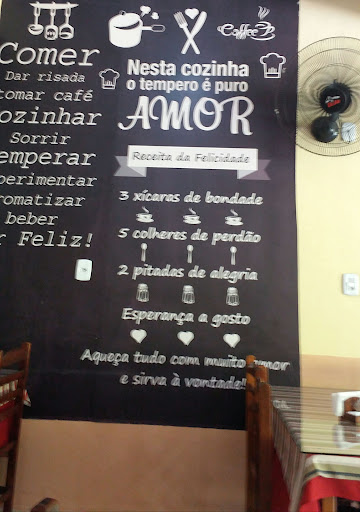 Comer
Dar risada
tomar café
Sorrir
beber
Feliz!
Coffee
Nesta cozinha
o tempero é puro
AMOR
Receita da Felicidade
3 xícaras de bondade
5 colheres de perdão
2 pitadas de alegria
Esperança a gosto
Aqueça tudo com muito amor
e sirva à vontade!